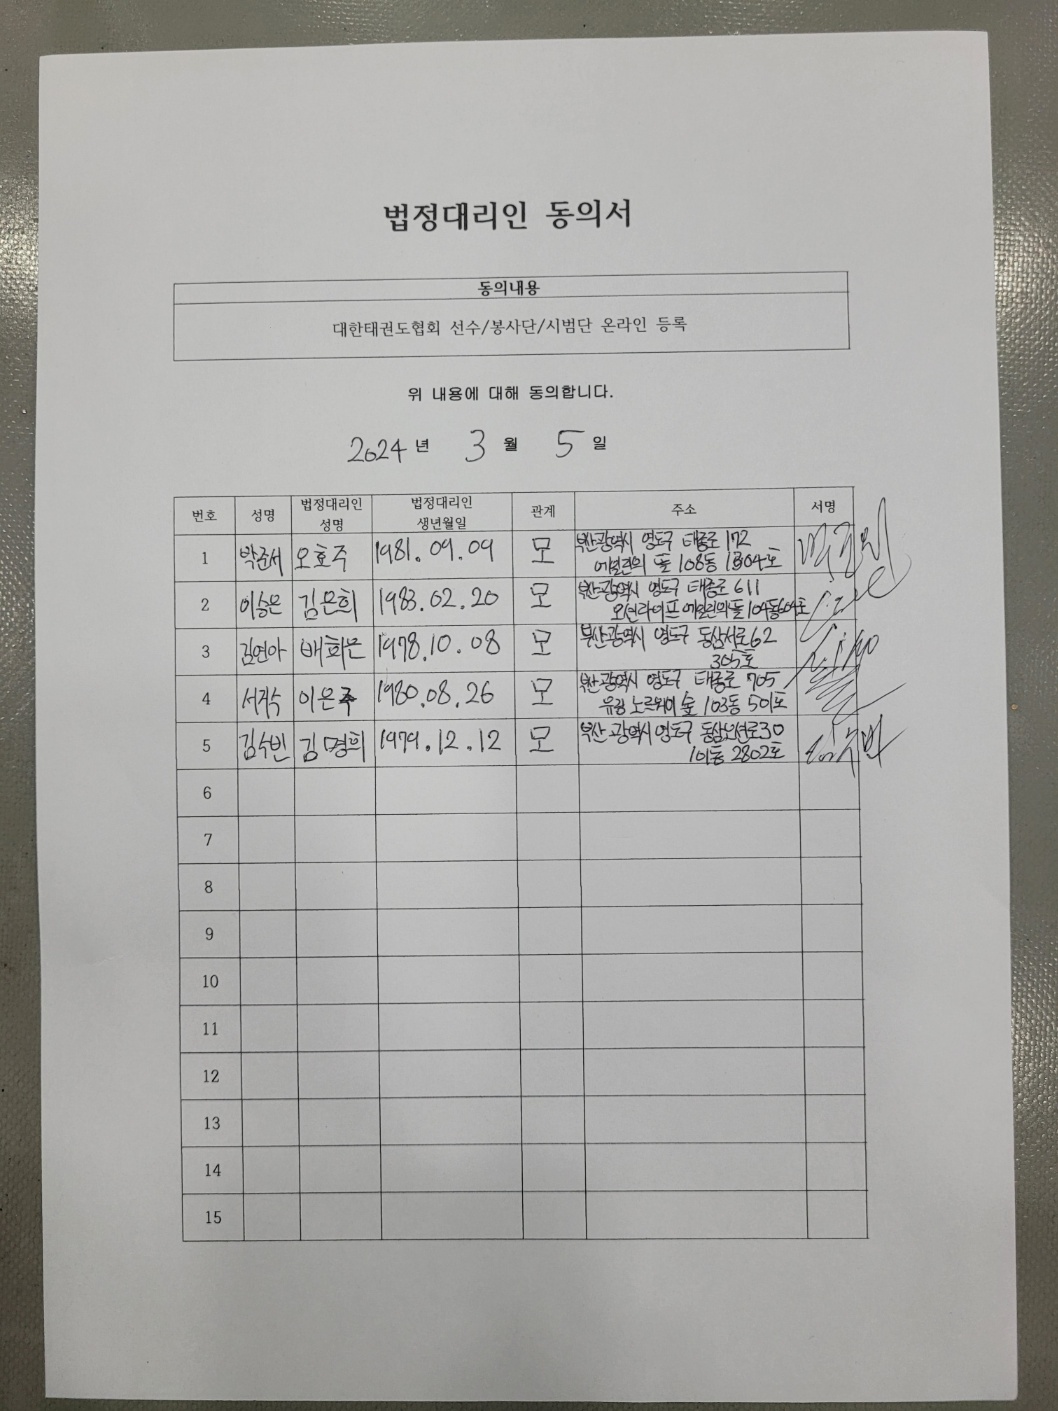 법정대리인 동의서
동의내용
대한태권도협회 선수/봉사단/시범단 온라인 등록
위 내용에 대해 동의합니다.
2024 년 3 월 5 일
번호 성명 법정대리인 성명 법정대리인 생년월일 관계 주소 서명
1 박준서 오효주 1981.09.09 모 부산광역시 영도구 태종로 172
에일린의 뜰 108동 1304호
2 이승은 김은희 1983.02.20 모 부산광역시 영도구 태종로 611
오션라이프 에일린의뜰 104동604호
3 김연아 배화은 1978.10.08 모 부산광역시 영도구 동삼서로62
305호
4 서지수 이은주 1980.08.26 모 부산광역시 영도구 태종로 705
유림 노르웨이 숲 103동 501호
5 김수빈 김명희 1979.12.12 모 부산광역시 영도구 30
101동 2802호
6
7
8
9
10
11
12
13
14
15